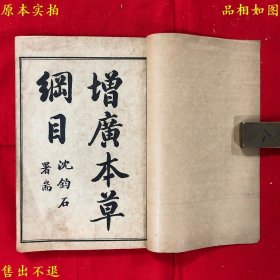 原本实拍
品相如图
增廣本草
綱目
沈鈞石
署耑
售出不退
独此一本